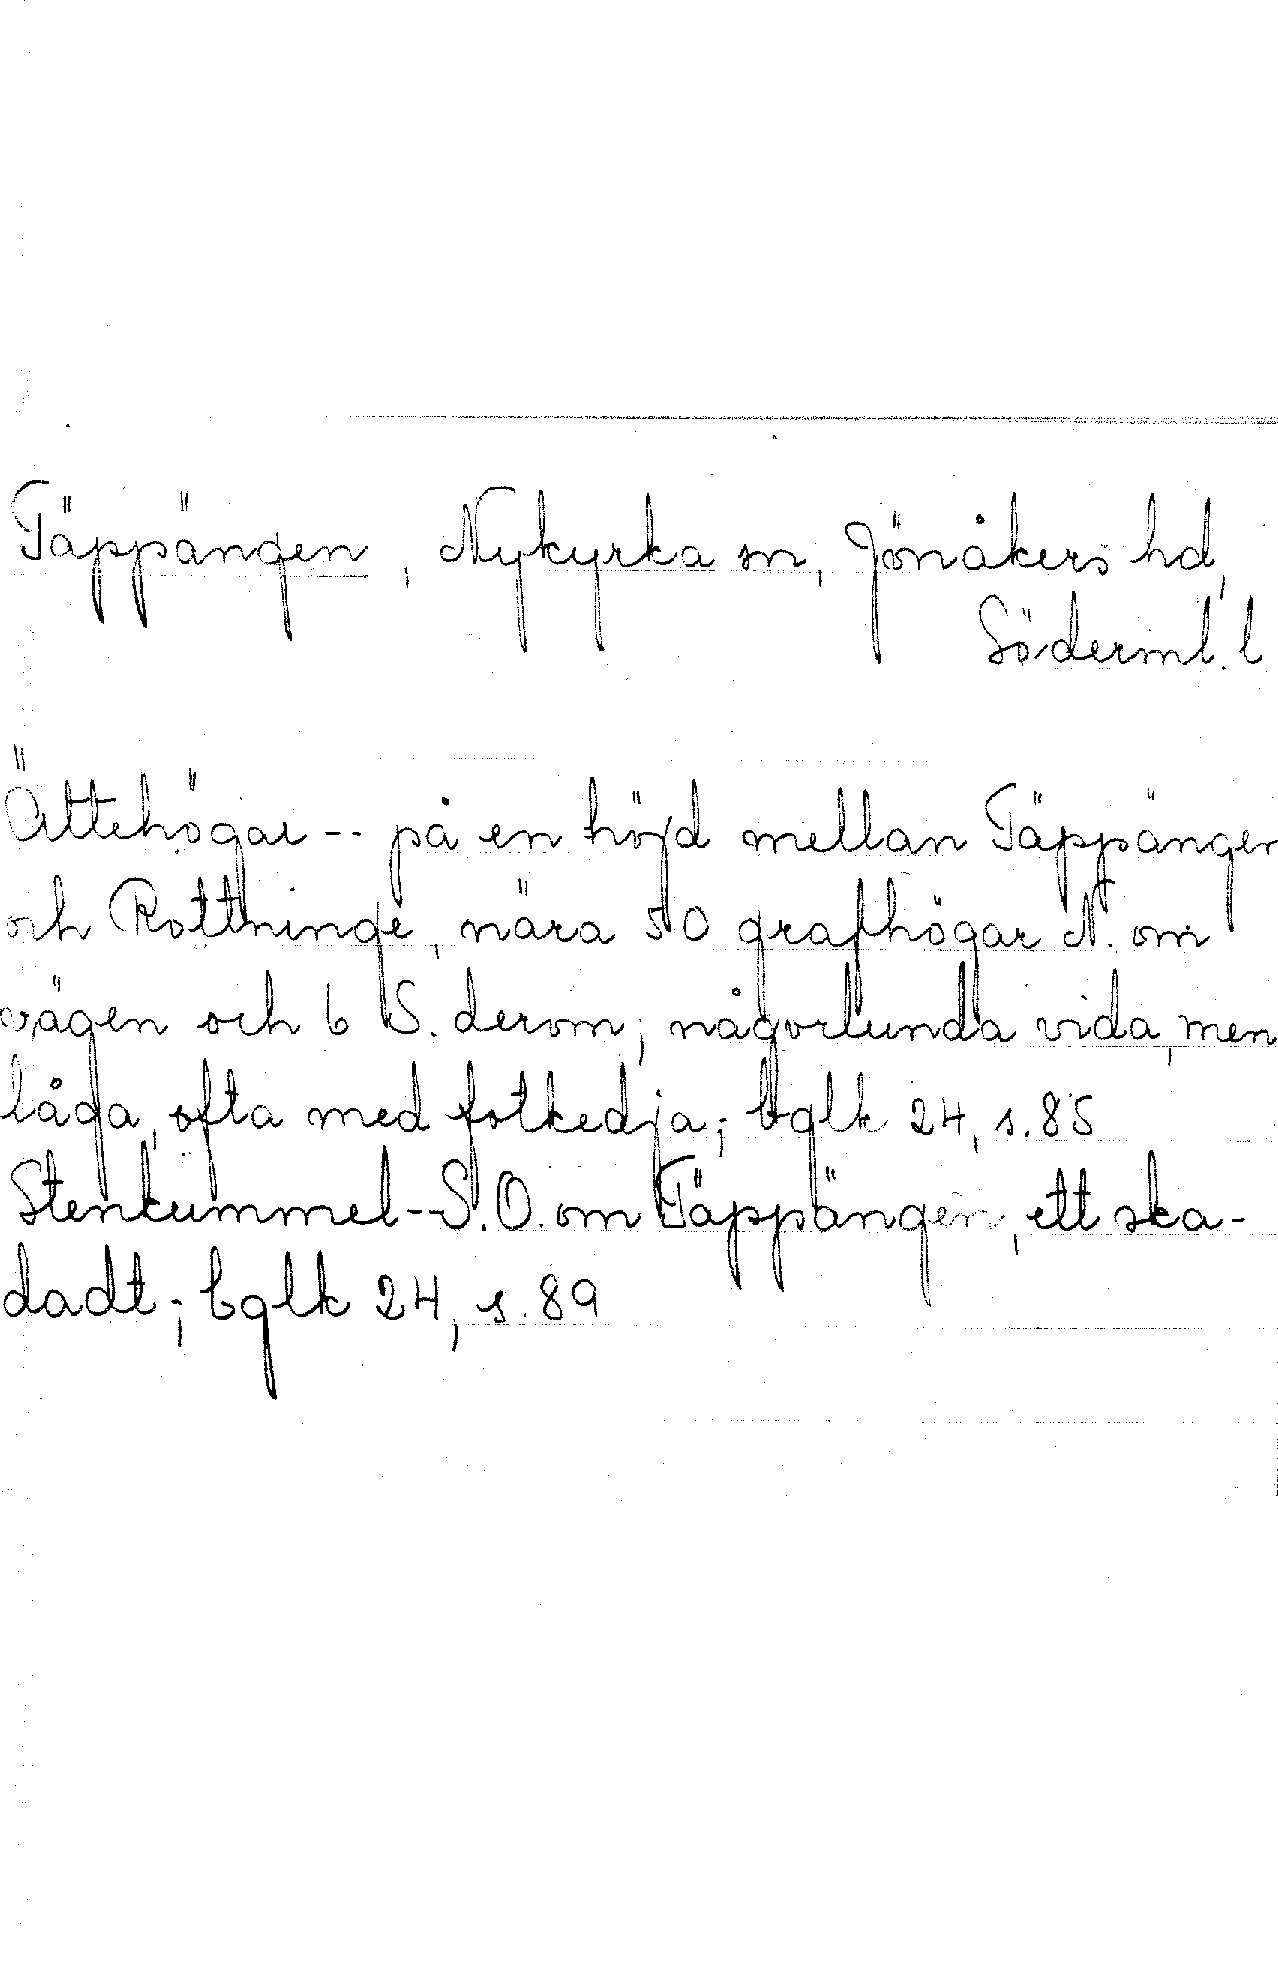 Täppängen, Nykyrka sn, Jönåkers hd,
Söderml. l
Ättehögar -- på en höjd mellan Täppängen
och Rottninge, nära 50 grafhögar N. om
vägen och 6 S. derom; någorlunda vida, men
låga, ofta med fotkedja; bglk 24, s. 85
Stenkummel -- S.O. om Täppängen, ett ska-
dadt; bglk 24, s. 89